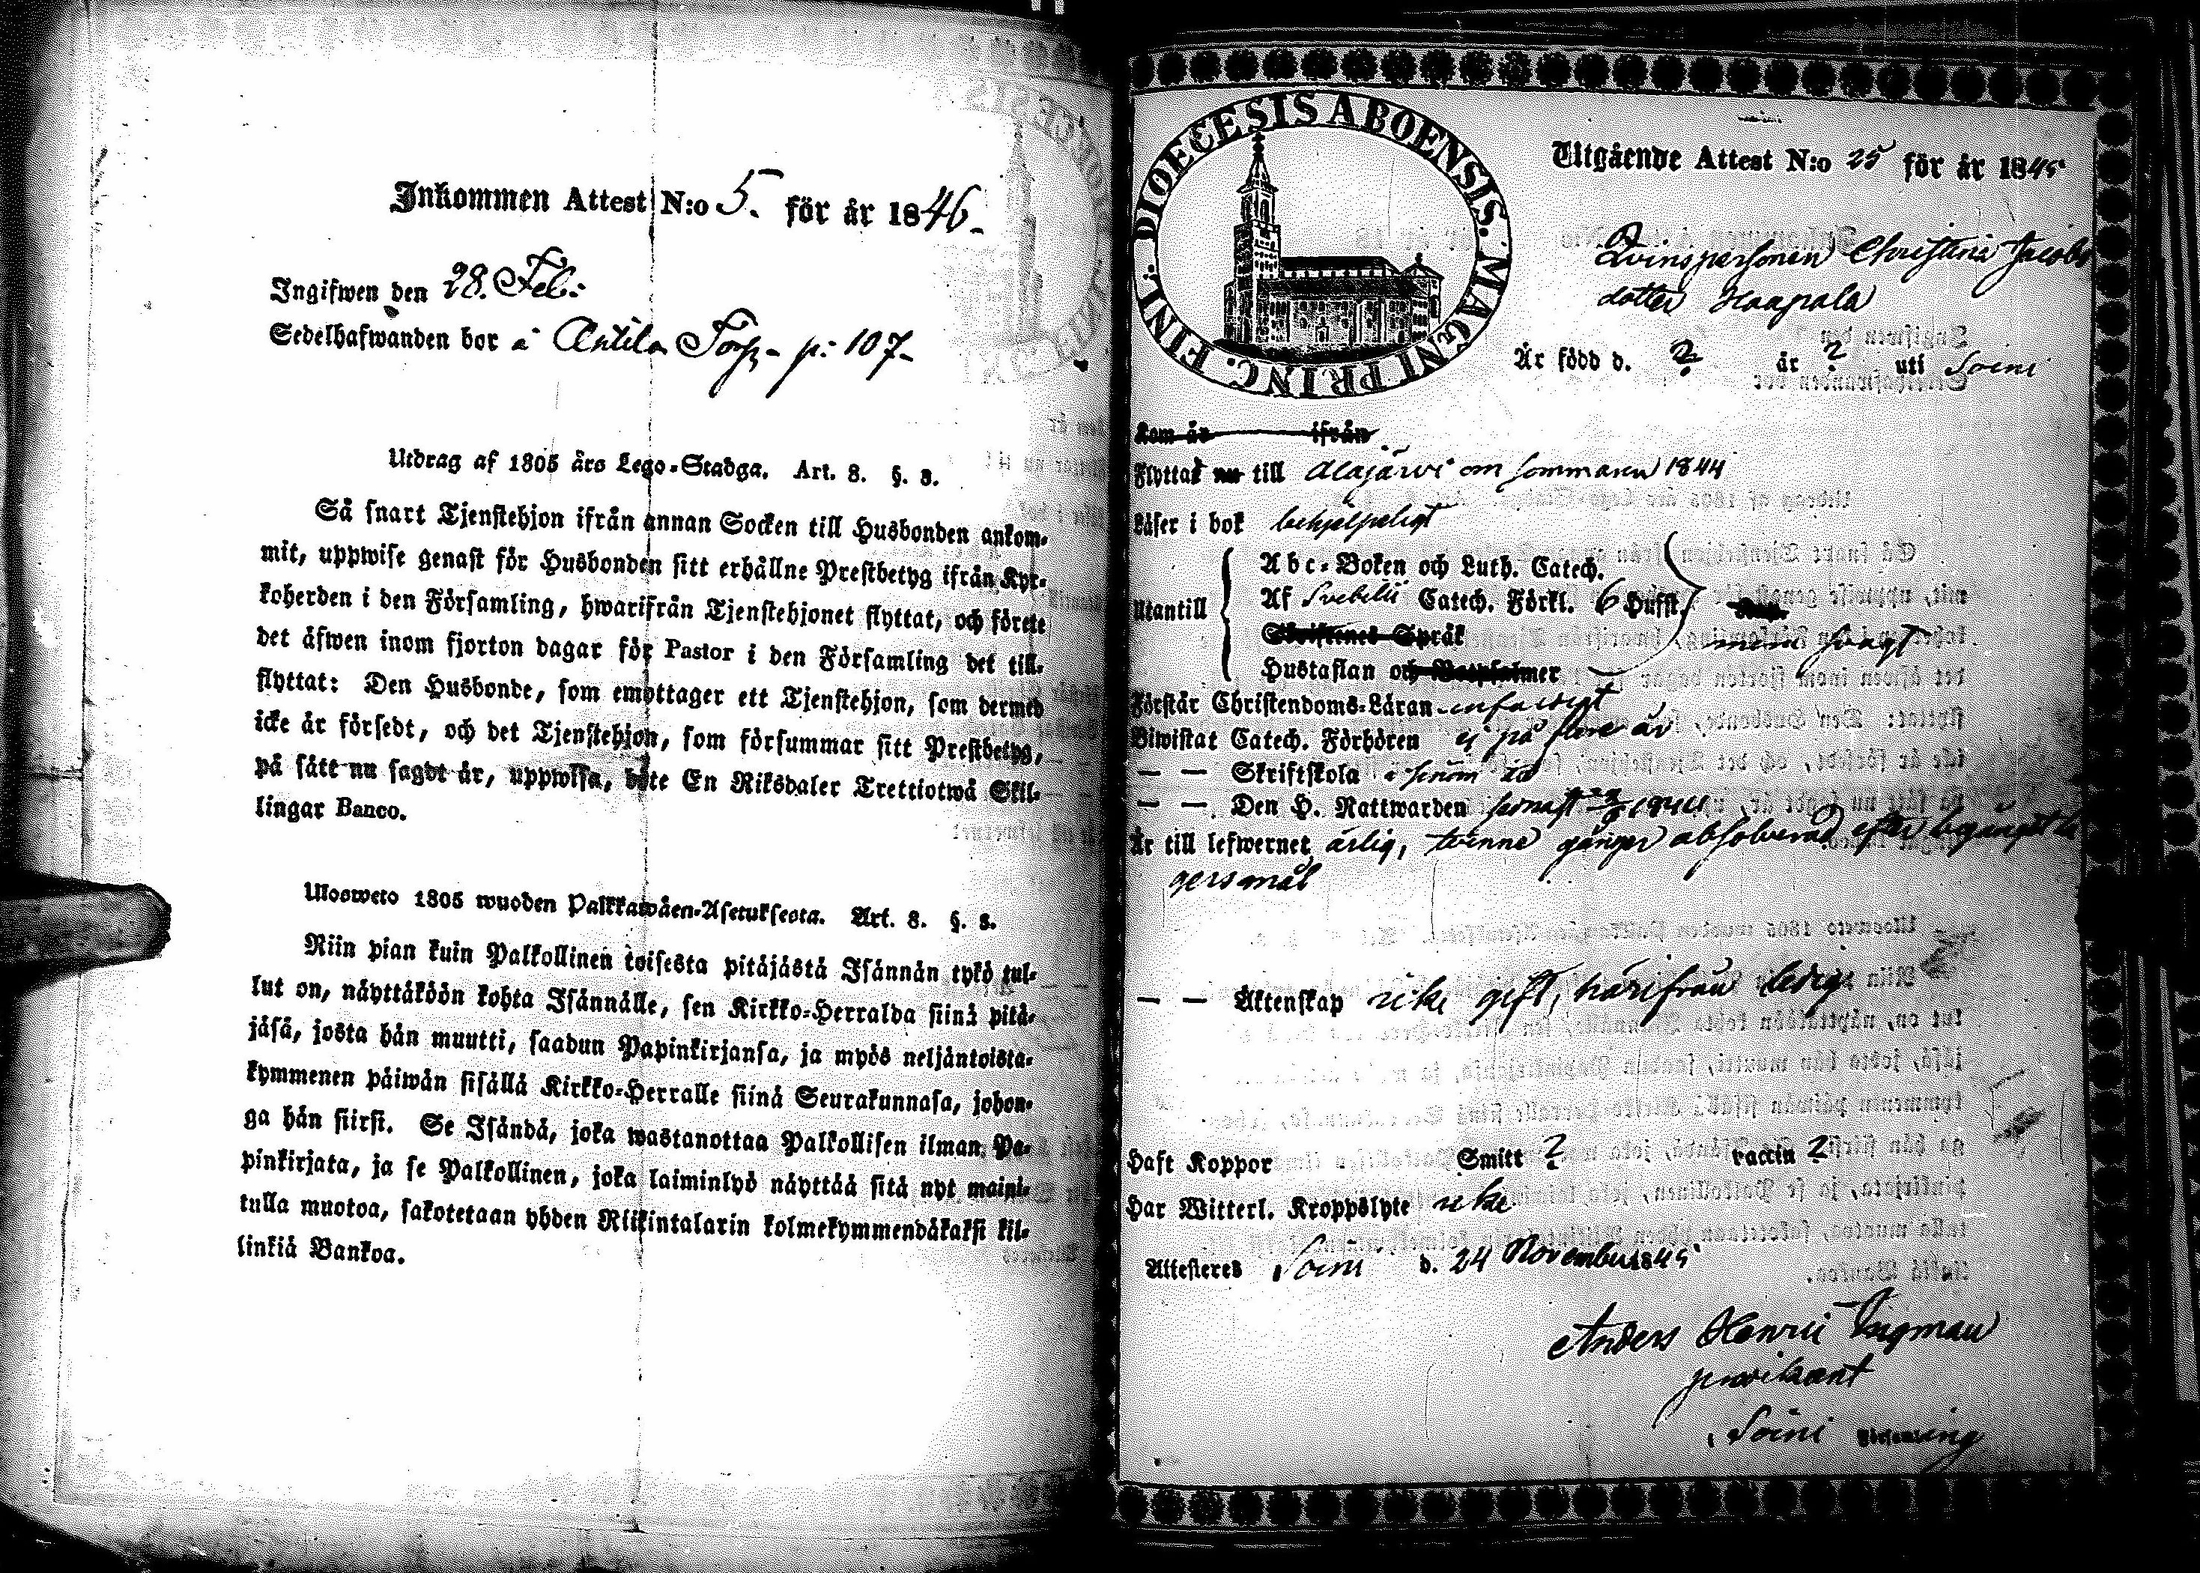 Inkommen Attest N:o 5. för år 1846.
Ingifwen den 28. Feb:
Sedelhafwanden bor å Antila Torp p: 107
Utdrag af 1805 års Lego-Stadga. Art. 8. §. 3.
Så snart Tjenstehjon ifrån annan Socken till Husbonden ankom-
mit, uppwise genast för Husbonden sitt erhållne Prestbetyg ifrån Kyr-
koherden i den Församling, hwarifrån Tjenstehjonet flyttat, och förete
det äfwen inom fjorton dagar för Pastor i den Församling det till-
flyttat: Den Husbonde, som emottager ett Tjenstehjon, som dermed
icke är försedt, och det Tjenstehjon, som försummar sitt Prestbetyg,
på sätt nu sagdt är, uppwisa, böte En Riksdaler Trettiotwå Skil-
lingar Banco.
Ulosweto 1805 wuoden Palkkawäen-Asetuksesta. Art. 8. §. 3.
Niin pian kuin Palkollinen toisesta pitäjästä Isännän tykö tul-
lut on, näyttäköön kohta Isännälle, sen Kirkko-Herralda siinä pitä-
jäsä, josta hän muutti, saadun Papinkirjansa, ja myös neljäntoista-
kymmenen päiwän sisällä Kirkko-Herralle siinä Seurakunnasa, johon-
ga hän siirsi. Se Isändä, joka wastanottaa Palkollisen ilman Pa-
pinkirjata, ja se Palkollinen, joka laiminlyö näyttää sitä nyt maini-
tulla muotoa, sakotetaan yhden Riikintalarin kolmekymmendäkaksi kil-
linkiä Bankoa.
DIOECESIS ABOENSIS. MAGNI PRINC. FINL.
Utgående Attest N:o 25 för år 1845
Qvinspersonen Christina Jacobs
dotter Haapala
Är född d. ? år ? uti Soini
Kom år ifrån
Flyttat nu till Alajärvi om sommaren 1844
Läser i bok behjelpeligt
Utantill
Abc-Boken och Luth. Catech.
Af Svebilii Catech. Förkl. 6 Hufst.
Skriftenes Språk
Hustaflan och
svagt
Förstår Christendoms-Läran enfaldigt
Biwistat Catech. Förhören ej på flere år
— — Skriftskola
— — Den H. Nattwarden senast 1844
Är till lefwernet ärlig, tvenne gånger absolverad efter begånget lä
gersmål
— — Äktenskap icke gift, härifrån ledig
Haft Koppor Smitt ? Vaccin ?
Har Witterl. Kroppslyte icke
Attesteras Soini d. 24 November 1845
Anders Henric Ingman
predikant
i Soini Församling